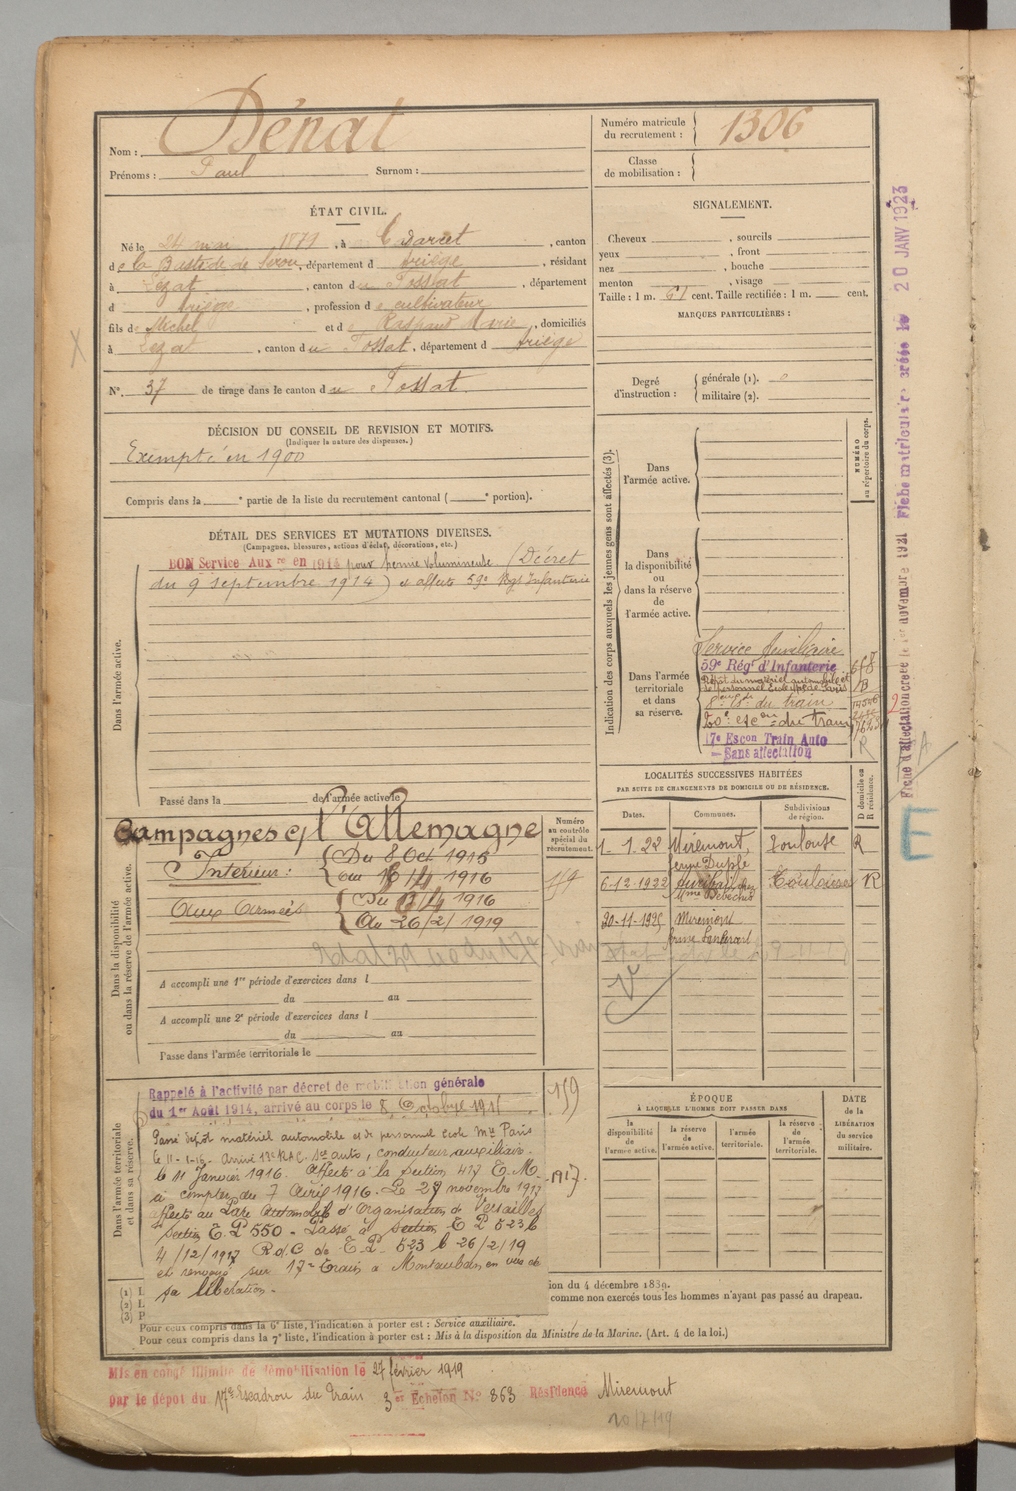 Nom : Dénat
Prénoms : Paul Surnom :
Numéro matricule du recrutement : 1306
Classe de mobilisation :
ÉTAT CIVIL.
Né le 24 mai 1879, à Cadarcet, canton
de la Bastide de Sérou, département d Ariège, résidant
à Lézat, canton du Fossat, département
d Ariège, profession de cultivateur
fils de Michel et de Raspaud Marie, domiciliés
à Lézat, canton du Fossat, département d Ariège
N° 37 de tirage dans le canton du Fossat.
SIGNALEMENT.
Cheveux , sourcils
yeux , front
nez , bouche
menton , visage
Taille : 1 m. 61 cent. Taille rectifiée : 1 m. cent.
MARQUES PARTICULIÈRES :
Degré d'instruction : générale (1). 0
militaire (2).
DÉCISION DU CONSEIL DE REVISION ET MOTIFS.
(Indiquer la nature des dispenses.)
Exempté en 1900
Compris dans la e partie de la liste du recrutement cantonal ( e portion).
DÉTAIL DES SERVICES ET MUTATIONS DIVERSES.
(Campagnes, blessures, actions d'éclat, décorations, etc.)
BON Service Aux re en 1914 pour (Décret
du 9 septembre 1914) et affecté 59e Rgt Infanterie
Dans l'armée active.
Passé dans la de l'armée active le
Indication des corps auxquels les jeunes gens sont affectés (3).
NUMÉRO au répertoire du corps.
Dans l'armée active.
Dans la disponibilité ou dans la réserve de l'armée active.
Dans l'armée territoriale et dans sa réserve.
Service Auxiliaire
59e Rég t d'Infanterie
Dépôt du matériel automobile et
de personnel
du train
20e escon du train
17e Escon Train Auto
— Sans affectation
R
Fiche d'affectation créée le 1er novembre 1921 Fiche matriculaire créée le 20 JANV 1923
E
LOCALITÉS SUCCESSIVES HABITÉES
PAR SUITE DE CHANGEMENTS DE DOMICILE OU DE RÉSIDENCE.
Dates. Communes. Subdivisions de région. D domicile ou R résidence.
1-1.22 Miremont, ferme Duplé Toulouse R
6-12-1922 Toulouse R
20-11-1925 Miremont
Dans la disponibilité ou dans la réserve de l'armée active.
Numéro au contrôle spécial du recrutement.
Campagnes c/ l'Allemagne
Intérieur : Du 8 Oct 1915
au 16/4/1916
Aux Armées Du 17/4/1916
Au 26/2/1919
A accompli une 1re période d'exercices dans l
du au
A accompli une 2e période d'exercices dans l
du au
Passé dans l'armée territoriale le
Dans l'armée territoriale et dans sa réserve.
Rappelé à l'activité par décret de mobilisation générale
du 1er Août 1914, arrivé au corps le 8 Octobre 1915
159
Passé dépôt matériel automobile et de personnel École Mre Paris
le 11-1-16. Arrivé 13e R.A.C. Son auto, conducteur auxiliaire
le 11 Janvier 1916. Affecté à la Section 417 T.M.
à compter du 7 Avril 1916. Le 27 novembre 1917
affecté au Parc Automobile d'Organisation de Versailles
Section E.P 550. Passé à section E P 523 b
4/12/1917 R.d.C de E.P. 523 b 26/2/19
et renvoyé sur 17e Train à Montauban en vue de
sa libération.
1917
ÉPOQUE
À LAQUELLE L'HOMME DOIT PASSER DANS
la disponibilité de l'armée active. la réserve de l'armée active. l'armée territoriale. la réserve de l'armée territoriale.
DATE de la LIBÉRATION du service militaire.
(1) I
(2) L
(3) P
ion du 4 décembre 1889.
comme non exercés tous les hommes n'ayant pas passé au drapeau.
Pour ceux compris dans la 6e liste, l'indication à porter est : Service auxiliaire.
Pour ceux compris dans la 7e liste, l'indication à porter est : Mis à la disposition du Ministre de la Marine. (Art. 4 de la loi.)
Mis en congé illimité de démobilisation le 27 février 1919
par le dépôt du 17e Escadron du Train 3e Echelon N° 863 Résidence Miremont
20/7/19